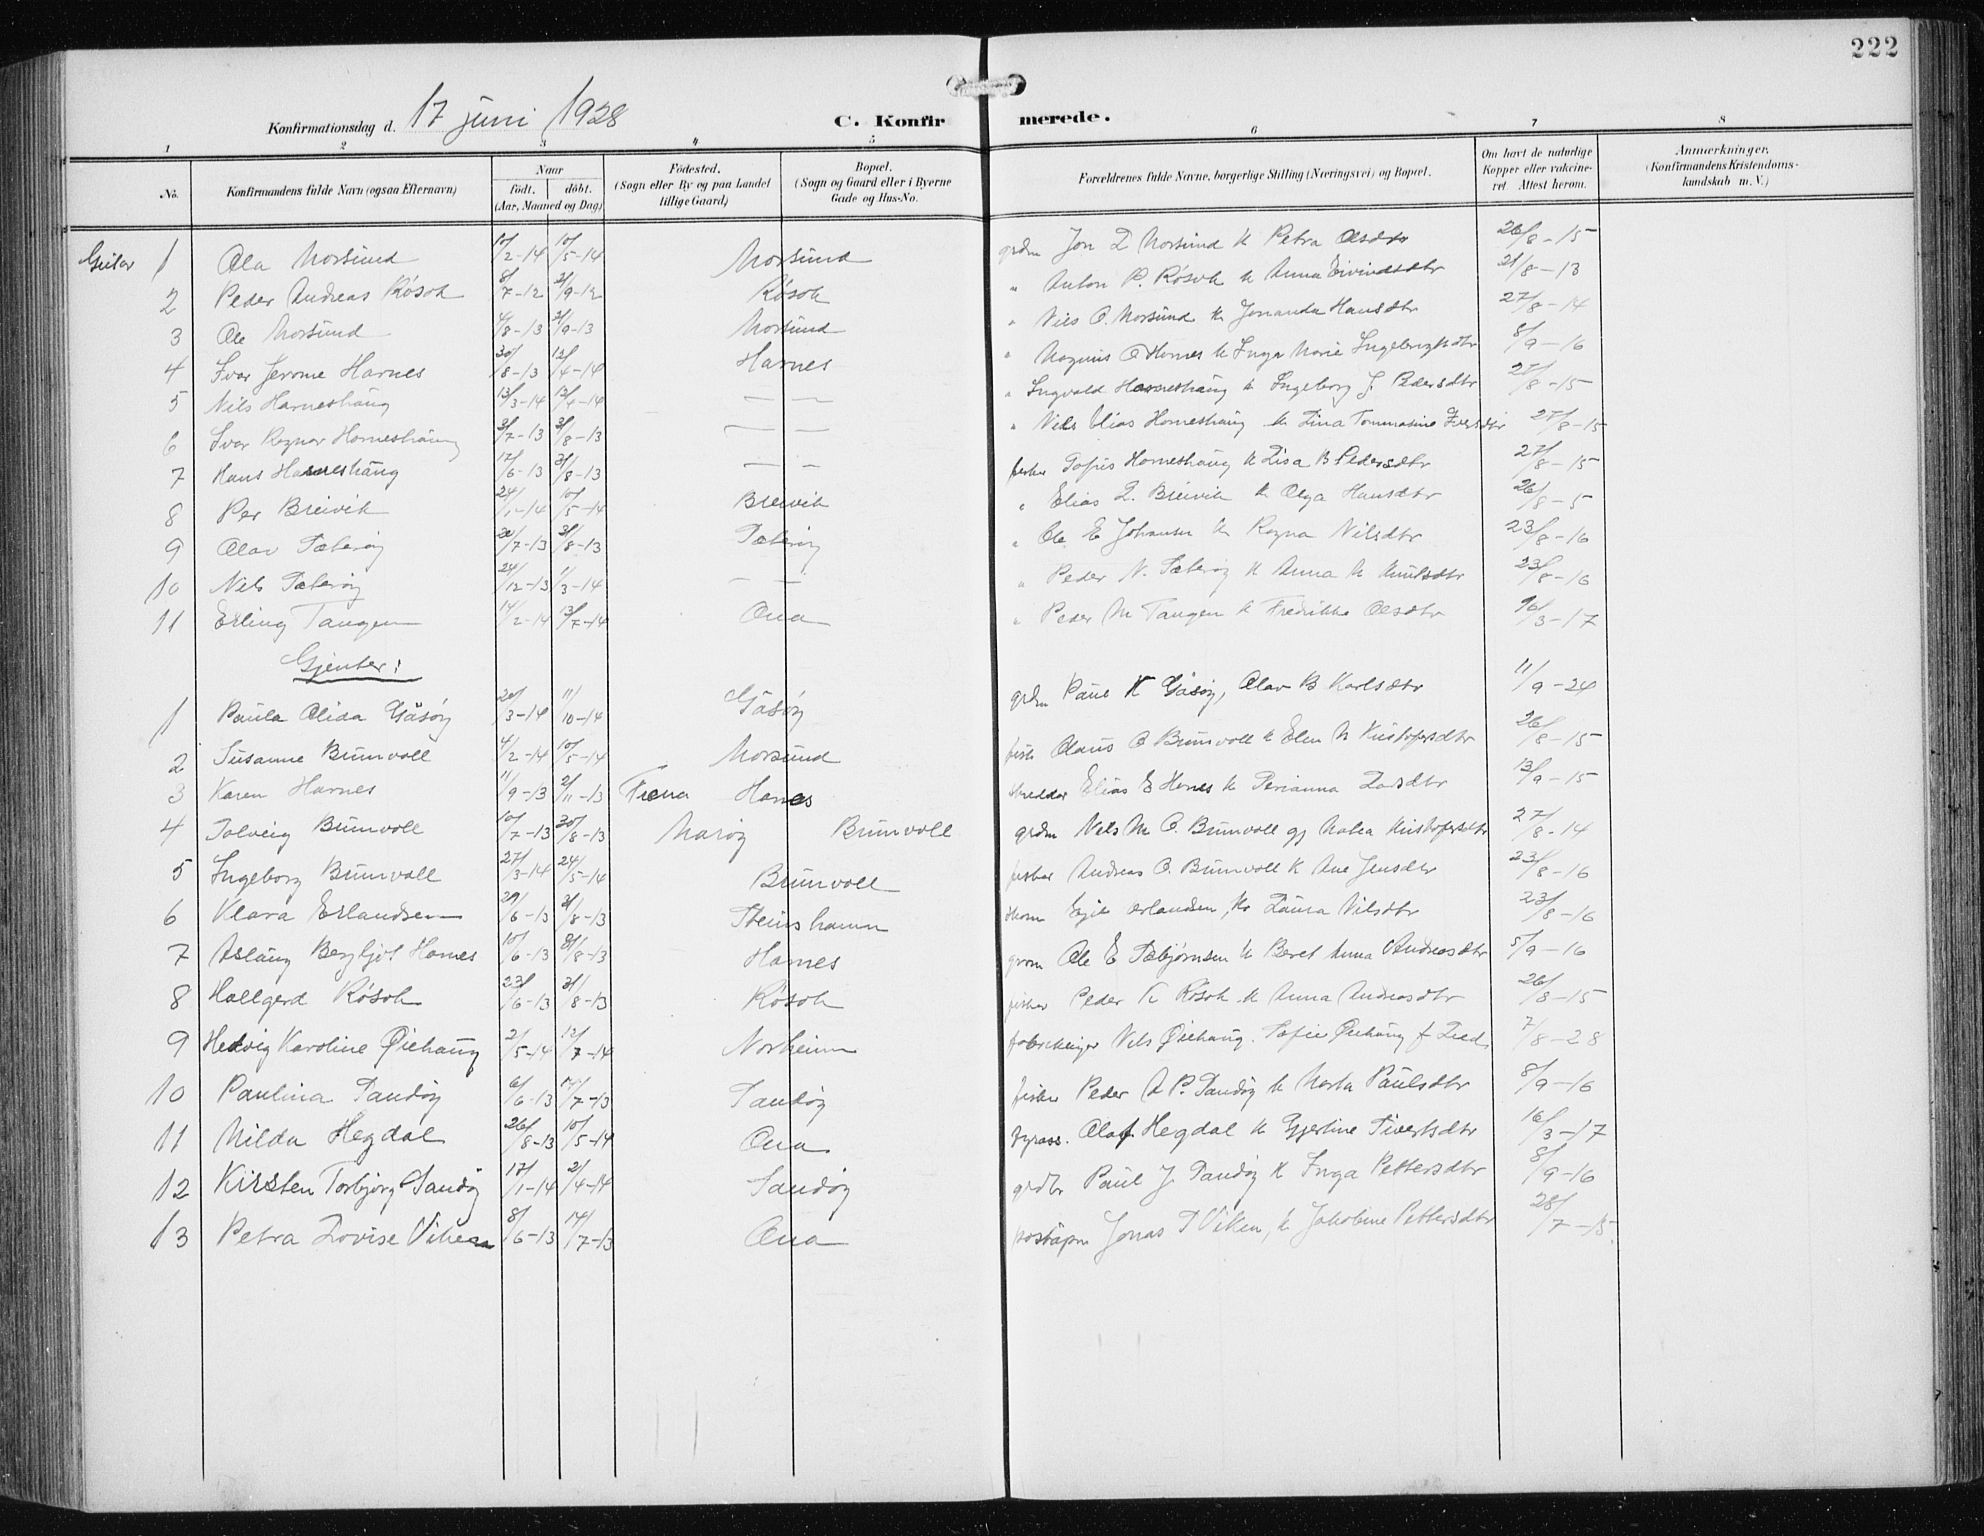 222
Konfirmationsdag d. 17 juni 1928 C. Konfirmerede.
1 2 3 4 5 6 7 8
No. Konfirmandens fulde Navn (ogsaa Efternavn) Naar født. døbt. (Aar, Maaned og Dag) Fødested. (Sogn eller By og paa Landet tillige Gaard) Bopæl. (Sogn og Gaard eller i Byerne Gade og Hus-No. Forældrenes fulde Navne, borgerlige Stilling (Næringsvei) og Bopæl. Om havt de naturlige Kopper eller vakcineret. Attest herom. Anmærkninger. (Konfirmandens Kristendomskundskab m. V.)
Guter 1 Ola Morsund 10/2-14 10/5-14 Morsund grdm Jon L Morsund k Petra Olsdtr 26/8-15
2 Peder Andreas Røsok 8/7-12 21/9-12 Røsok " Anton P. Røsok k Anna Eivindsdtr 21/8-13
3 Ole Morsund 4/8-13 21/9-13 Morsund " Nils O. Morsund k Jonanda Hansdtr 27/8-14
4 Ivar Jerome Harnes 30/8-13 13/4-14 Harnes " Magnus O Harnes k Inga Marie Ingebrigtsdtr 8/9-16
5 Nils Harneshaug 13/3-14 13/4-14 — — " Ingvald Harneshaug k Ingeborg J. Pedersdtr 27/8-15
6 Ivar Ragnar Harneshaug 3/7-13 31/8-13 — — " Nils Elias Harneshaug k Lina Tommasine Iversdtr 27/8-15
7 Hans Harneshaug 17/6-13 31/8-13 — — fisker Tofius Harneshaug k Lisa B Pedersdtr 27/8-15
8 Per Breivik 24/1-14 10/5-14 Breivik " Elias L. Breivik k Olga Hansdtr 26/8-5
9 Olav Sæterøy 20/7-13 31/8-13 Sæterøy " Ole E Johansen k Ragna Nilsdtr 23/8-16
10 Nils Sæterøy 24/12-13 1/3-14 — — " Peder N. Sæterøy k Anna K Knutsdtr 23/8-16
11 Erling Tangen 14/2-14 13/7-14 Ona " Peder M Tangen k Fredrikke Olsdtr 16/3-17
Gjenter:
1 Paula Alida Gåsøy 20/3-14 11/10-14 Gåsøy grdm Paul K Gåsøy, Olav B Karlsdtr 11/9-24
2 Susanne Bunvoll 4/2-14 10/5-14 Morsund fisk Claus O Bunvoll k Elen M Kristofersdtr 26/8-15
3 Karen Harnes 11/9-13 2/11-13 Fræna Harnes skredder Elias E Harnes k Perianna Larsdtr 13/9-15
4 Solveig Bunvoll 10/7-13 30/8-13 Marøy Bunvoll grdm Nils M O. Bunvoll gj Malia Kristofersdtr 27/8-14
5 Ingeborg Bunvoll 27/3-14 24/5-14 Bunvoll fisker Andreas O. Bunvoll k Ane Jensdtr 23/8-16
6 Klara Erlandsen 29/6-13 31/8-13 Steinshamn skom Egil Erlandsen, k Laura Nilsdtr 23/8-16
7 Aslaug Bergljot Harnes 10/6-13 31/8-13 Harnes grdm Ole E Torbjørnsen k Beret Anna Andreasdtr 5/9-16
8 Hallgerd Røsok 23/6-13 31/8-13 Røsok fisker Peder K Røsok k Anna Andreasdtr 26/8-15
9 Hedvig Karoline Øiehaug 2/5-14 12/7-14 Norheim fabrikeier Nils Øiehaug. Sofie Øiehaug f Lied 7/8-28
10 Paulina Sandøy 6/6-13 14/7-13 Sandøy fisker Peder A P. Sandøy k Marta Paulsdtr 8/9-16
11 Milda Hegdal 26/8-13 10/5-14 Ona fyrass. Olaf Hegdal k Gjertine Sivertsdtr 16/3-17
12 Kirsten Torbjørg Sandøy 17/1-14 2/4-14 Sandøy grdbr Paul J Sandøy k Inga Pettersdtr 8/9-16
13 Petra Lovise Viken 8/6-13 14/7-13 Ona poståpn Jonas P Viken, k Jakobine Pettersdtr 28/7-15.